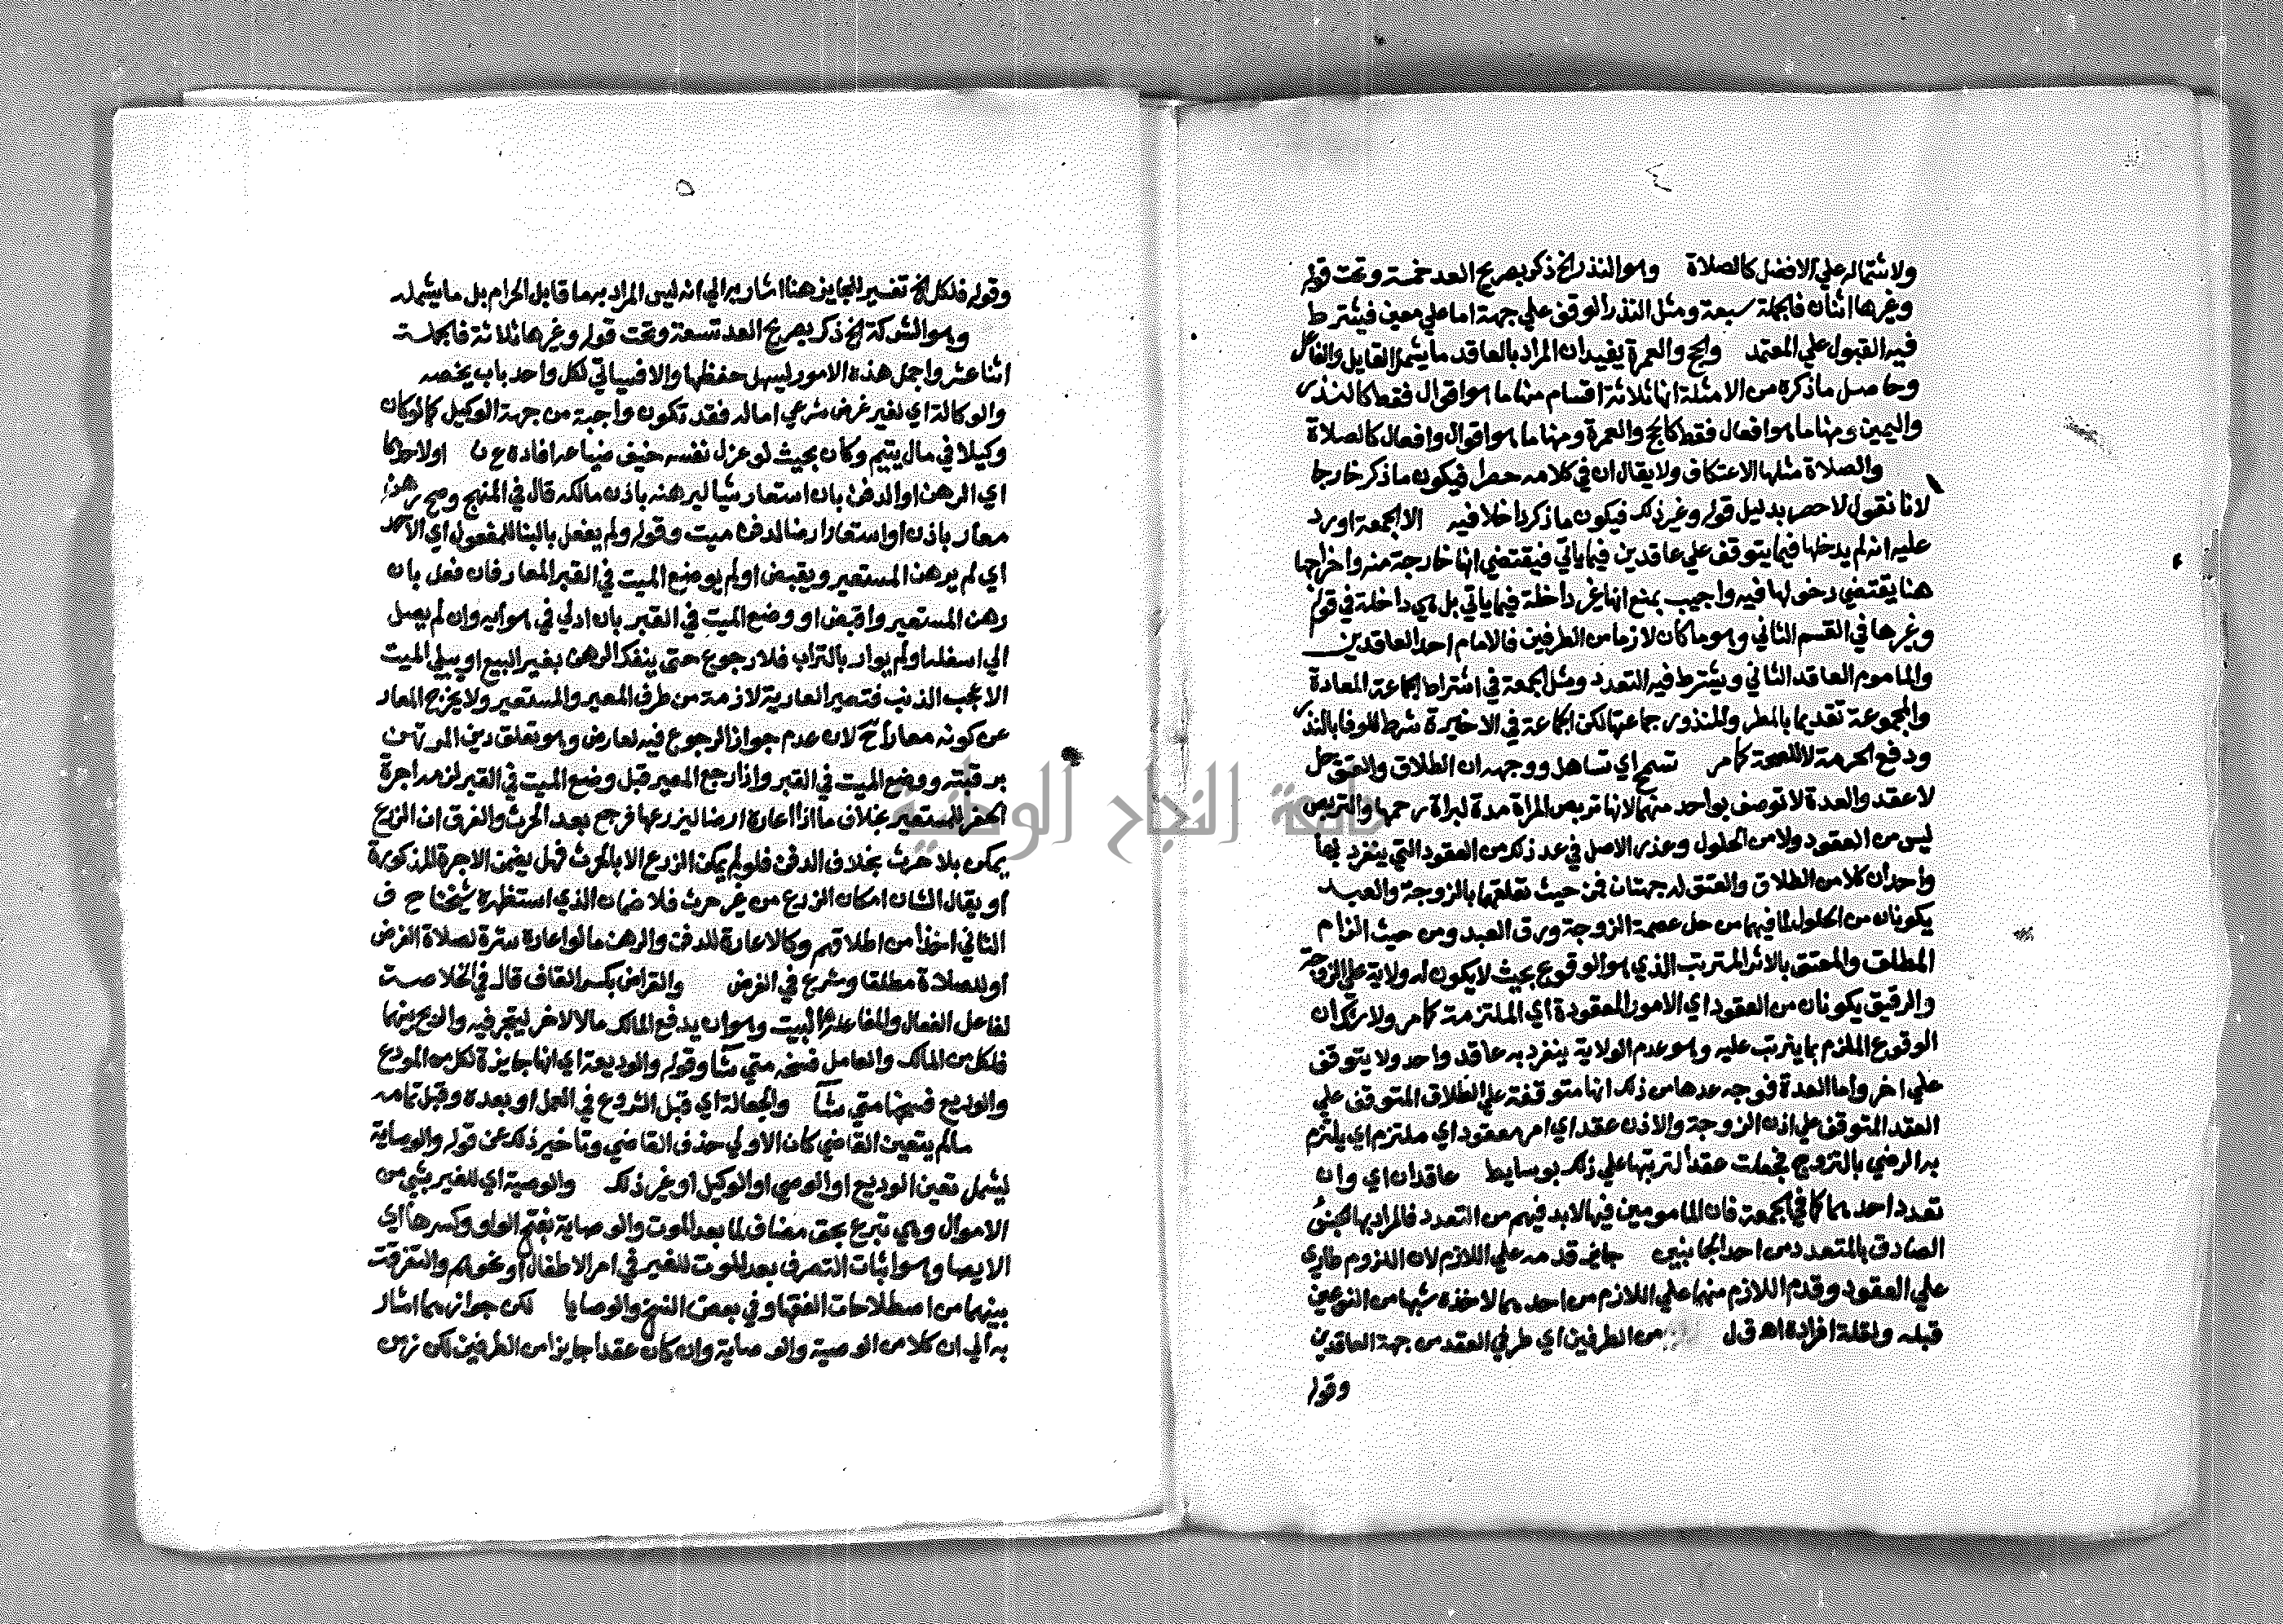 ولاشتماله علي الافضل كالصلاة وهو النذر الخ ذكر بصريح العد خمسة وتحت قوله
وغيرها اثنان فالجملة سبعة ومثل النذر الوقف علي جهة اما علي معين فيشترط
فيه القبول علي المعتمد والحج والعمرة يفيد ان المراد بالعاقد ما يشمل القايل والفاعل
وحاصل ما ذكره من الامثلة انها ثلاثة اقسام منها ما هو اقوال فقط كالنذر
واليمين ومنها ما هو افعال فقط كالحج والعمرة ومنها ما هو اقوال وافعال كالصلاة
والصلاة مثلها الاعتكاف ولا يقال ان في كلامه حصرا فيكون ما ذكر خارجا
لانا نقول لا حصر بدليل قوله وغير ذلك فيكون ما ذكر داخلا فيه الا الجمعة اورد
عليه انه لم يدخلها فيما يتوقف علي عاقدين فيما ياتي فيقتضي انها خارجة منه واخراجها
هنا يقتضي دخولها فيه واجيب بمنع انها غير داخلة فيما ياتي بل هي داخلة في قوله
وغيرها في القسم الثاني وهو ما كان لازما من الطرفين فالامام احد العاقدين
والماموم العاقد الثاني ويشترط فيه التعدد ومثل الجمعة في اشتراط الجماعة المعادة
والمجموعة تقديما بالمطر والمنذور جماعتها لكن الجماعة في الاخيرة شرط للوفا بالنذر
ودفع الحرمة لا للصحة كما مر تسمح اي تساهل ووجهه ان الطلاق والعتق حل
لا عقد والعدة لا توصف بواحد منهما لانها تربص المراة مدة لبراة رحمها والتربص
ليس من العقود ولا من الحلول وعذر الاصل في عد ذلك من العقود التي ينفرد بها
واحد ان كلا من الطلاق والعتق له جهتان فمن حيث تعلقهما بالزوجة والعبد
يكونان من الحلول لما فيهما من حل عصمة الزوجة ورق العبد ومن حيث الزام
المطلق والمعتق بالاثر المترتب الذي هو الوقوع بحيث لا يكون له ولاية علي الزوجة
والرقيق يكونان من العقود اي الامور المعقودة اي الملتزمة كما مر ولا شك ان
الوقوع الملزم بما يترتب عليه وهو عدم الولاية ينفرد به عاقد واحد ولا يتوقف
علي اخر واما العدة فوجه عدها من ذلك انها متوقفة علي الطلاق المتوقف علي
العقد المتوقف علي اذن الزوجة والاذن عقد اي امر معقود اي ملتزم اي يلتزم
به الرضي بالتزوج فجعلت عقدا لترتبها علي ذلك بوسايط عاقدان اي وان
تعدد احدهما كما في الجمعة فان المامومين فيها لا بد فيهم من التعدد فالمراد بها الجنس
الصادق بالمتعدد من احد الجانبين جايز قدمه علي اللازم لان اللزوم طاري
علي العقود وقدم اللازم منهما علي اللازم من احدهما لاخذه شبها من النوعين
قبله ولقلة افراده اهـ ق ل من الطرفين اي طرفي العقد من جهة العاقدين
وقوله
وقوله فلكل الخ تفسير الجايز هنا اشار به الي انه ليس المراد به ما قابل الحرام بل ما يشمله
وهو الشركة الخ ذكر بصريح العد تسعة وتحت قوله وغيرها ثلاثة فالجملة
اثنا عشر واجمل هذه الامور ليسهل حفظها والا فسياتي لكل واحد باب يخصه
والوكالة اي لغير غرض شرعي اما له فقد تكون واجبة من جهة الوكيل كما لو كان
وكيلا في مال يتيم وكان بحيث لو عزل نفسه خيف ضياعه افاده ع ن اولاحدها
اي الرهن او الدفن بان استعار شيا ليرهنه باذن مالكه قال في المنهج وصح رهن
معار باذن او استعار ارضا لدفن ميت وقوله ولم يفعل بالبنا للمفعول اي الاحد
اي لم يرهن المستعير ويقبض او لم يوضع الميت في القبر المعار فان فعل بان
رهن المستعير واقبض او وضع الميت في القبر بان ادلي في هوايه وان لم يصل
الي اسفله او لم يوار بالتراب فلا رجوع حتي ينفك الرهن بغير البيع او يبلي الميت
الا عجب الذنب فتصير العارية لازمة من طرف المعير والمستعير ولا يخرج المعار
عن كونه معارا ح لان عدم جواز الرجوع فيه لعارض وهو تعلق دين المرتهن
برقبته ووضع الميت في القبر واذا رجع المعير قبل وضع الميت في القبر لزمه اجرة
الحفر للمستعير بخلاف ما اذا اعاره ارضا ليزرعها فرجع بعد الحرث والفرق ان الزرع
يمكن بلا حرث بخلاف الدفن فلو لم يمكن الزرع الا بالحرث فهل يضمن الاجرة المذكورة
او يقال الشان امكان الزرع من غير حرث فلا ضمان الذي استظهره شيخنا ح ف
الثاني اخذا من اطلاقهم وكالاعارة للدفن والرهن ما لو اعاره سترة لصلاة الفرض
او للصلاة مطلقا وشرع في الفرض والقراض بكسر القاف قال في الخلاصة
لفاعل الفعال والمفاعله البيت وهو ان يدفع المالك مالا لاخر ليتجر فيه والربح بينهما
فلكل من المالك والعامل فسخه متي شا وقوله والوديعة اي انها جايزة لكل من المودع
والوديع فسخها متي شا والجعالة اي قبل الشروع في العمل او بعده وقبل تمامه
مالم يتعين القاضي كان الاولي حذف القاضي وتاخير ذلك عن قوله والوصاية
ليشمل تعين الوديع او الوصي او الوكيل او غير ذلك والوصية اي للغير بشي من
الاموال وهي تبرع بحق مضاف لما بعد الموت والوصاية بفتح الواو وكسرها اي
الايصا وهو اثبات التصرف بعد الموت للغير في امر الاطفال او نحوهم والتفرقة
بينهما من اصطلاحات الفقها وفي بعض النسخ والوصايا لكن جوازهما اشار
به الي ان كلا من الوصية والوصاية وان كان عقدا جايزا من الطرفين لكن
جامعة النجاح الوطنية